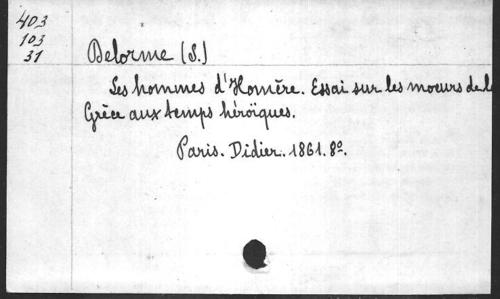 403
103
31
Delorme (S.)
Les hommes d'Homère. Essai sur les moeurs de l
Grèce aux temps héroïques.
Paris. Didier. 1861. 8º.